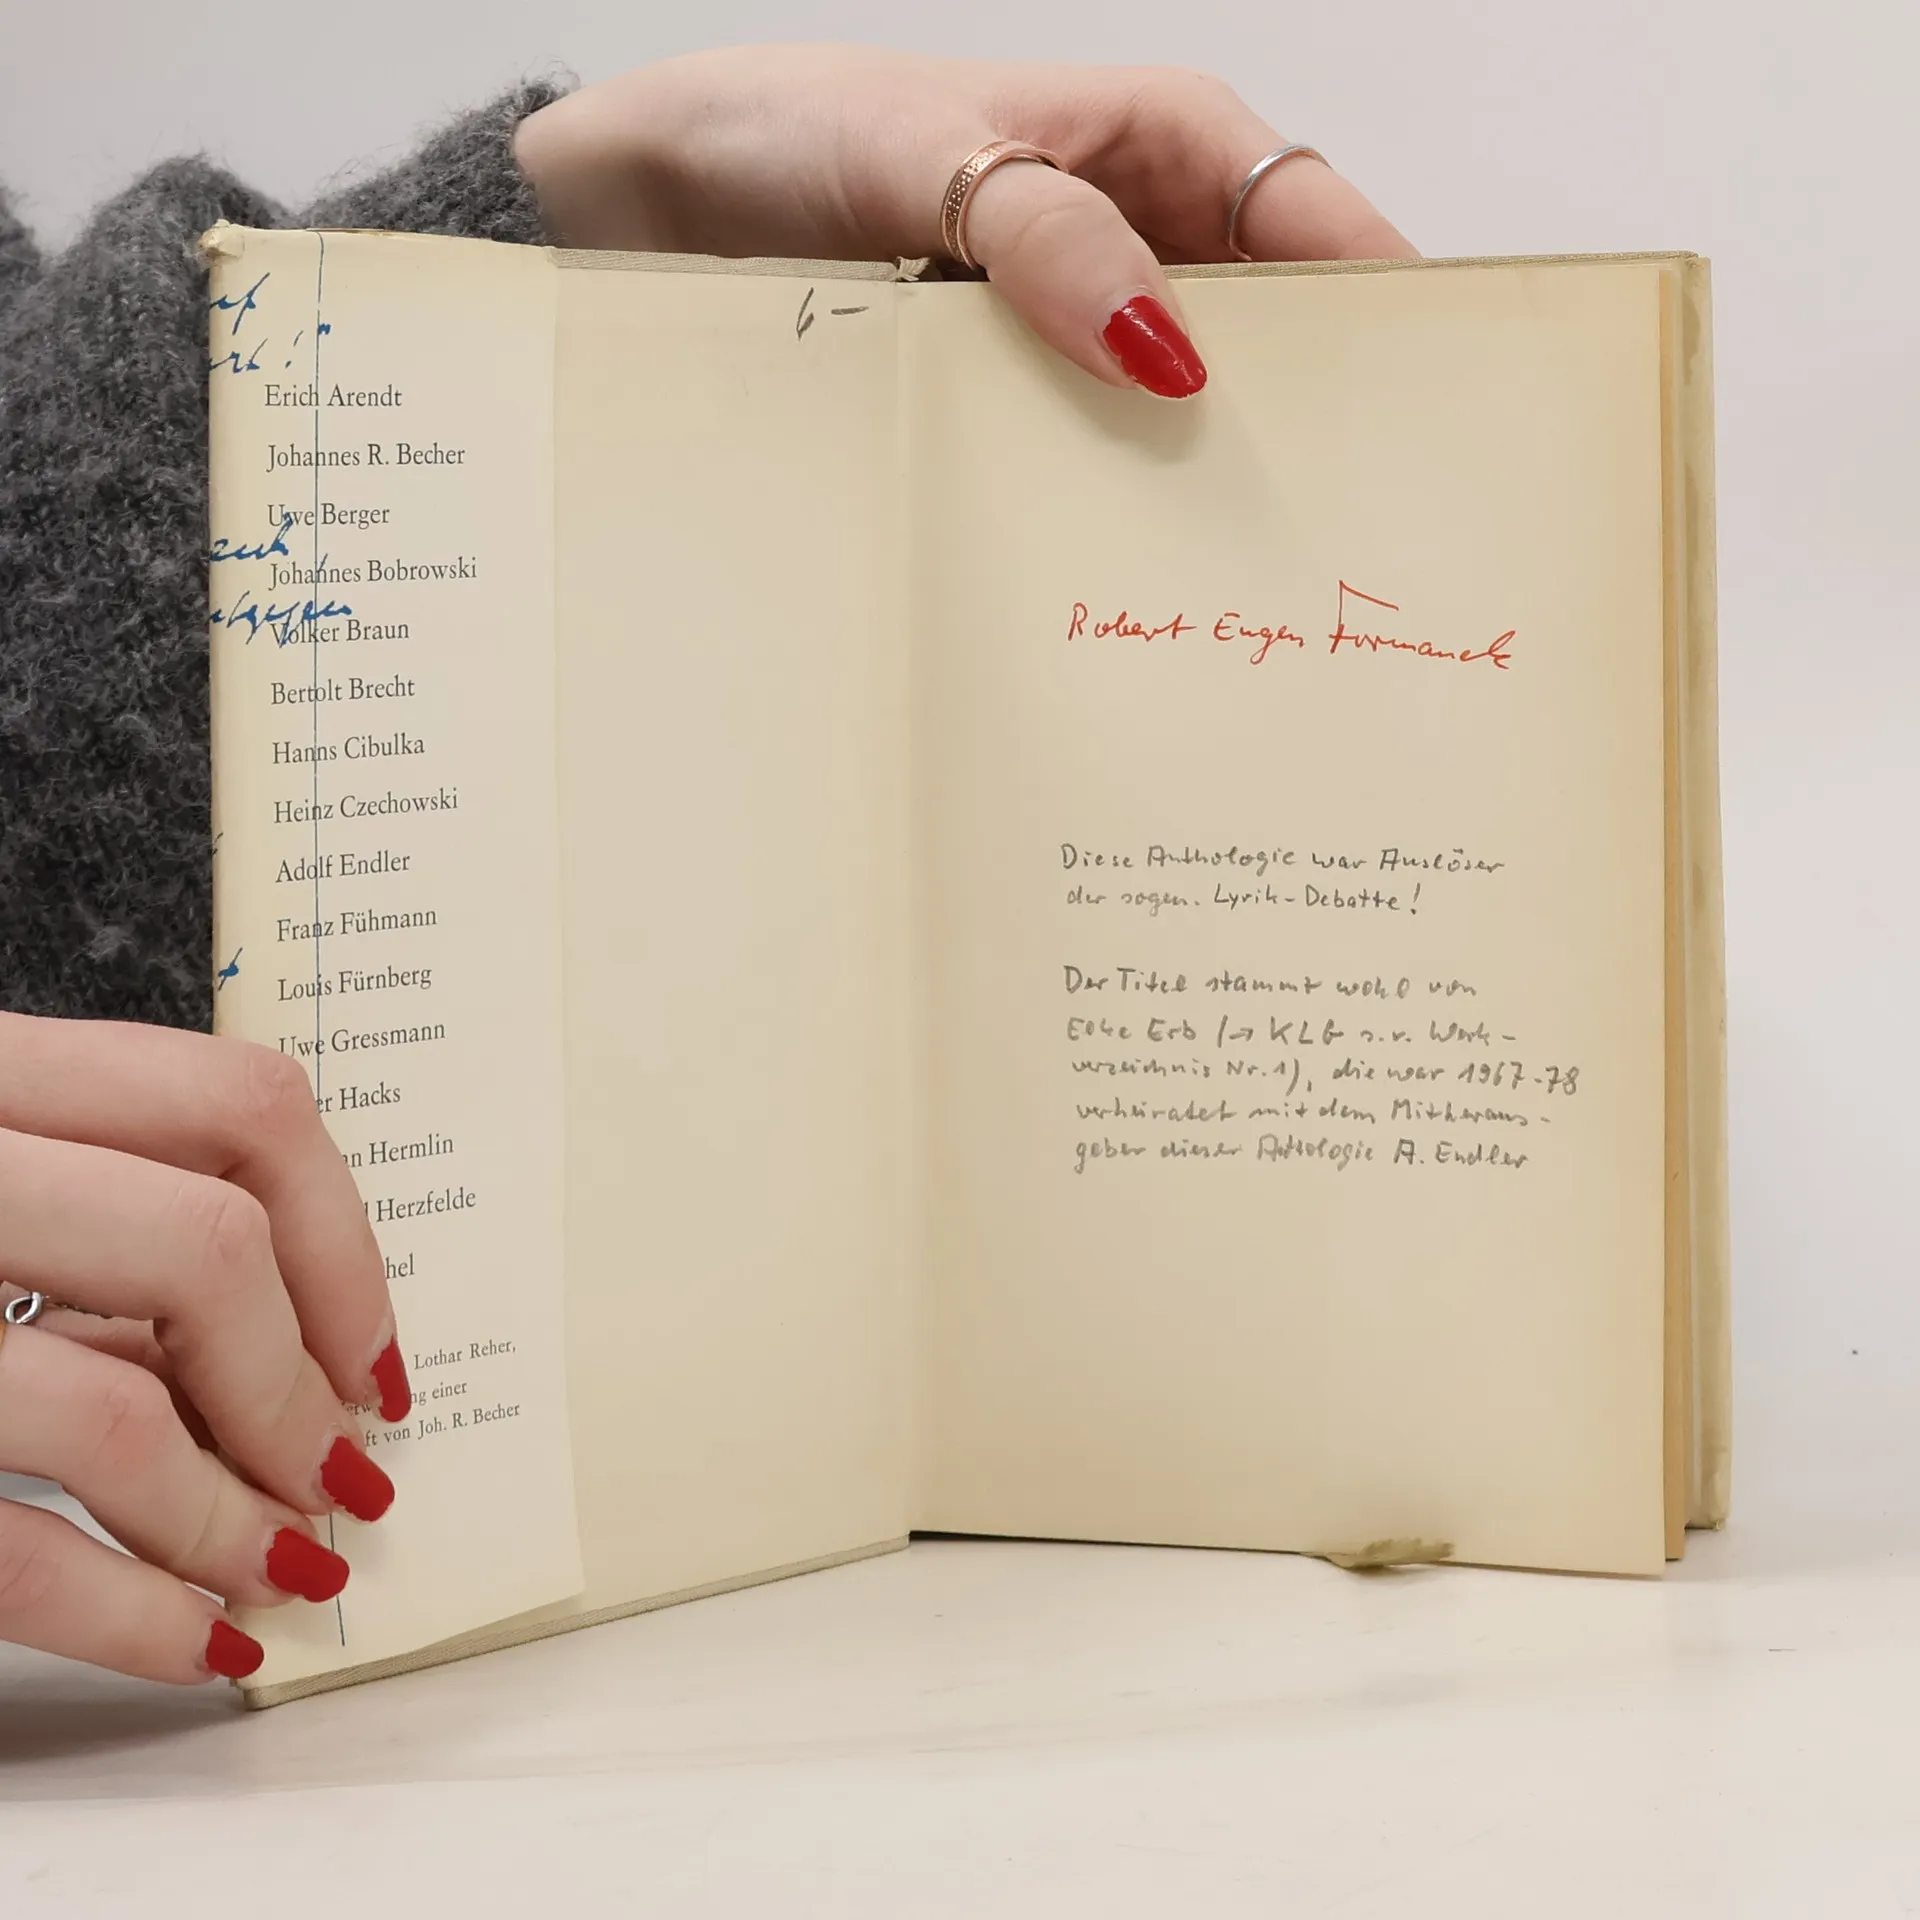 6 –
Erich Arendt
Johannes R. Becher
Uwe Berger
Johannes Bobrowski
Volker Braun
Bertolt Brecht
Hanns Cibulka
Heinz Czechowski
Adolf Endler
Franz Fühmann
Louis Fürnberg
Uwe Gressmann
er Hacks
an Hermlin
Herzfelde
hel
Lothar Reher,
ng einer
ft von Joh. R. Becher
Robert Eugen Formanek
Diese Anthologie war Auslöser
der sogen. Lyrik-Debatte!
Der Titel stammt wohl von
Elke Erb (→ KLG s.v. Werk-
verzeichnis Nr. 1), die war 1967-78
verheiratet mit dem Mitheraus-
geber dieser Anthologie A. Endler